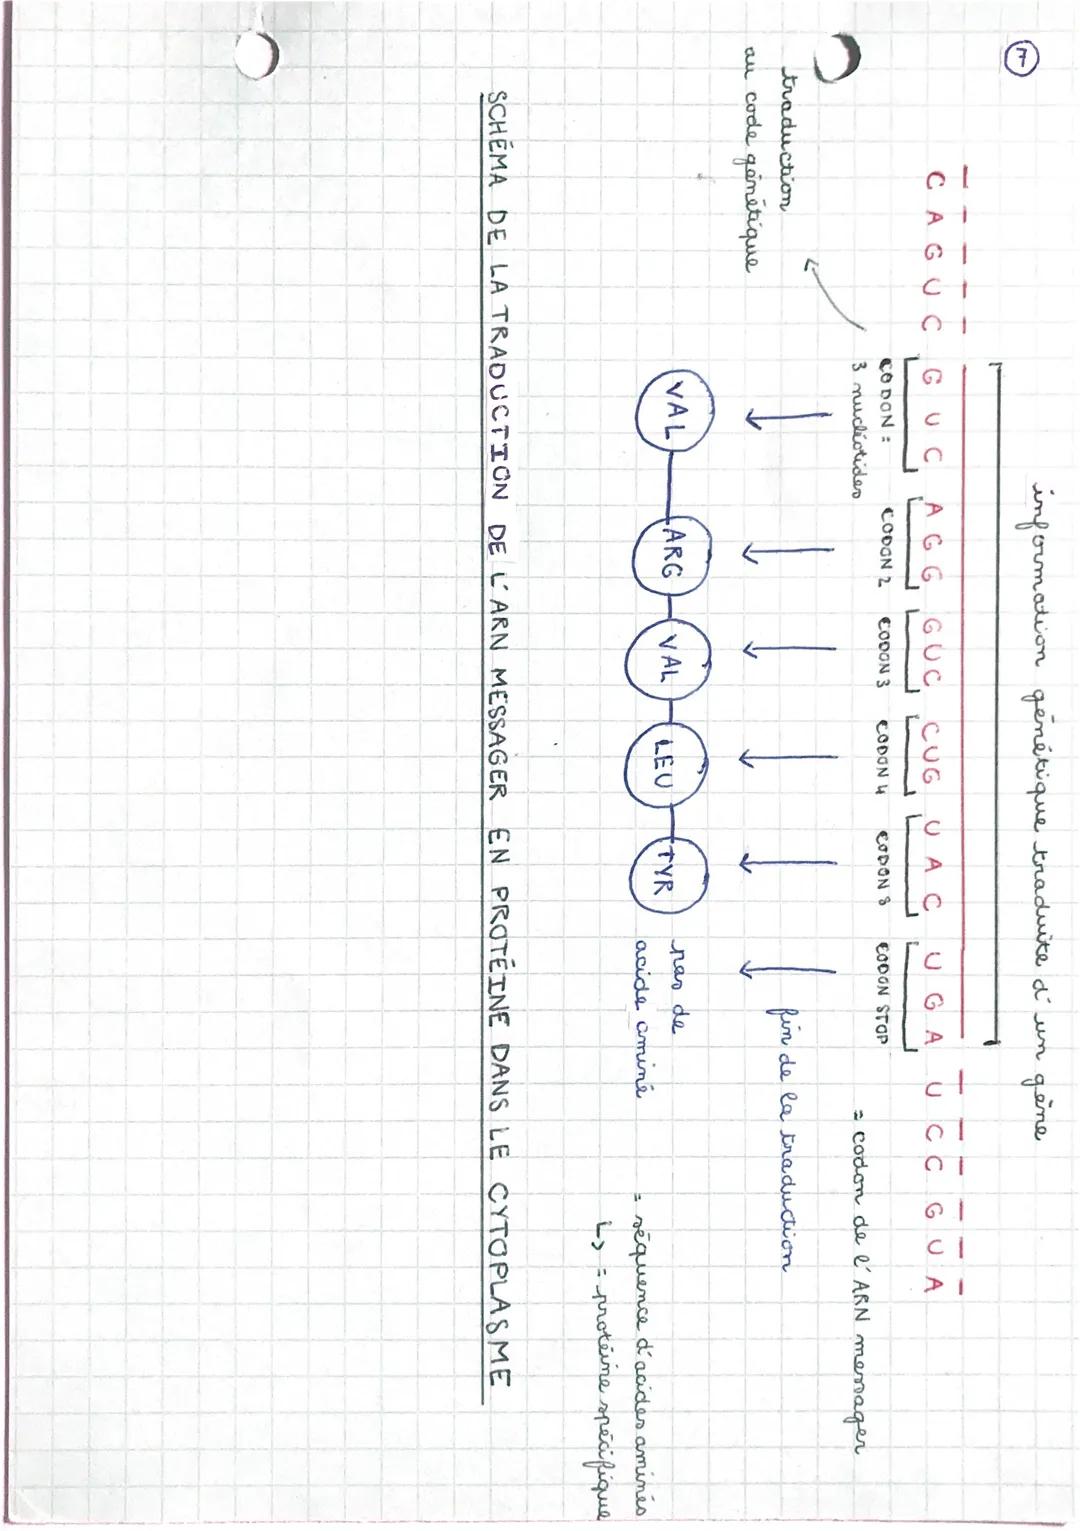 7
information génétique traduite d'un gène
C A G U C G U C A G G G U C C U G U A C U G A U C C G U A
CODON = CODON 2 CODON 3 CODON 4 CODON 5 CODON STOP = codon de l'ARN messager
3 nucléotides
traduction
au code génétique
fin de la traduction
VAL ARG VAL LEU TYR pas de
acide aminé
= séquence d'acides aminés
↳ = protéine spécifique
SCHÉMA DE LA TRADUCTION DE L'ARN MESSAGER EN PROTÉINE DANS LE CYTOPLASME